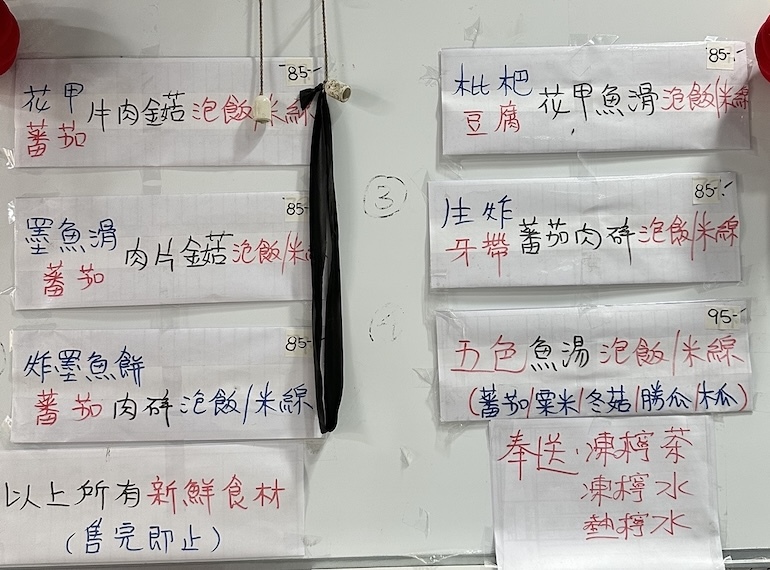 花甲 85-
蕃茄 牛肉金菇 泡飯/米線
墨魚滑 85-
蕃茄 肉片金菇 泡飯/米
炸墨魚餅 85-
蕃茄 肉碎 泡飯/米線
以上所有新鮮食材
(售完即止)
枇杷 85-
豆腐 花甲魚滑 泡飯/米線
③
生炸 85-
牙帶 蕃茄肉碎 泡飯/米線
95-
五色魚湯泡飯/米線
(蕃茄/粟米/冬菇/勝瓜/木瓜)
奉送.凍檸茶
凍檸水
熱檸水